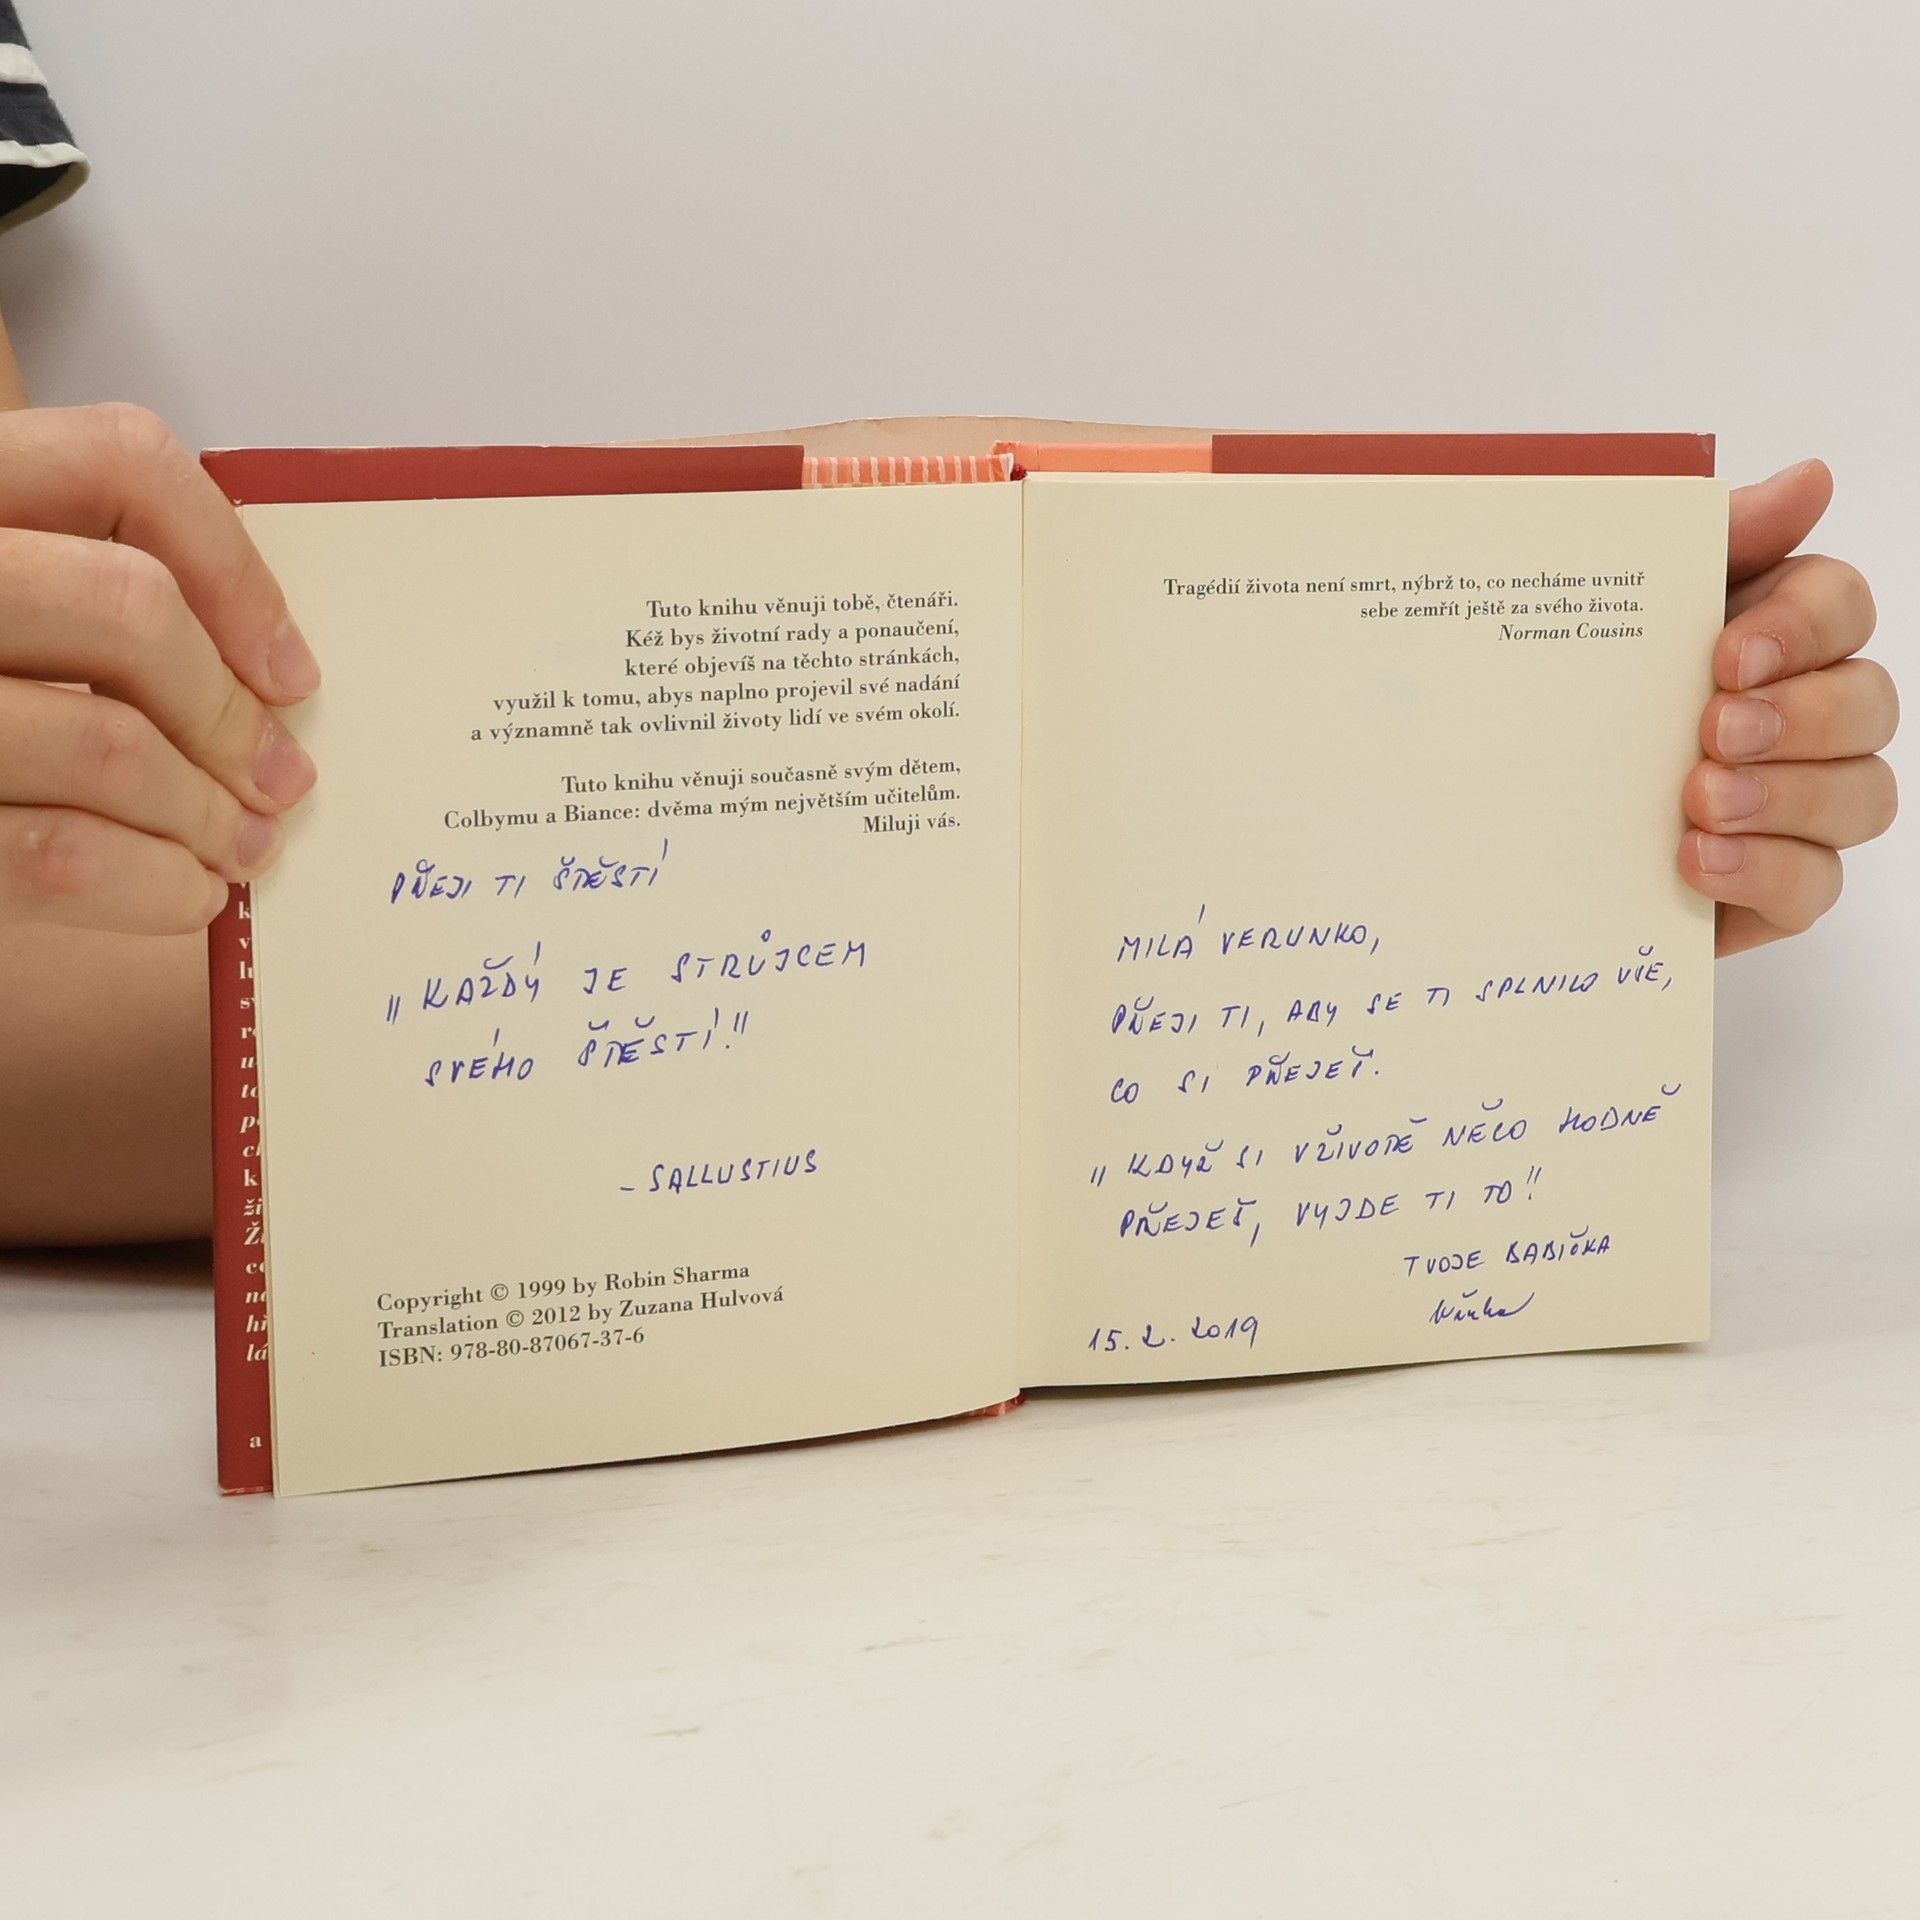 Tuto knihu věnuji tobě, čtenáři.
Kéž bys životní rady a ponaučení,
které objevíš na těchto stránkách,
využil k tomu, abys naplno projevil své nadání
a významně tak ovlivnil životy lidí ve svém okolí.
Tuto knihu věnuji současně svým dětem,
Colbymu a Biance: dvěma mým největším učitelům.
Miluji vás.
PŘEJI TI ŠTĚSTÍ
„KAŽDÝ JE STRŮJCEM
SVÉHO ŠTĚSTÍ!"
- SALLUSTIUS
Copyright © 1999 by Robin Sharma
Translation © 2012 by Zuzana Hulvová
ISBN: 978-80-87067-37-6
Tragédií života není smrt, nýbrž to, co necháme uvnitř
sebe zemřít ještě za svého života.
Norman Cousins
MILÁ VERUNKO,
PŘEJI TI, ABY SE TI SPLNILO VŠE,
CO SI PŘEJEŠ.
„KDYŽ SI V ŽIVOTĚ NĚCO HODNĚ
PŘEJEŠ, VYJDE TI TO!"
TVOJE BABIČKA
15. 2. 2019